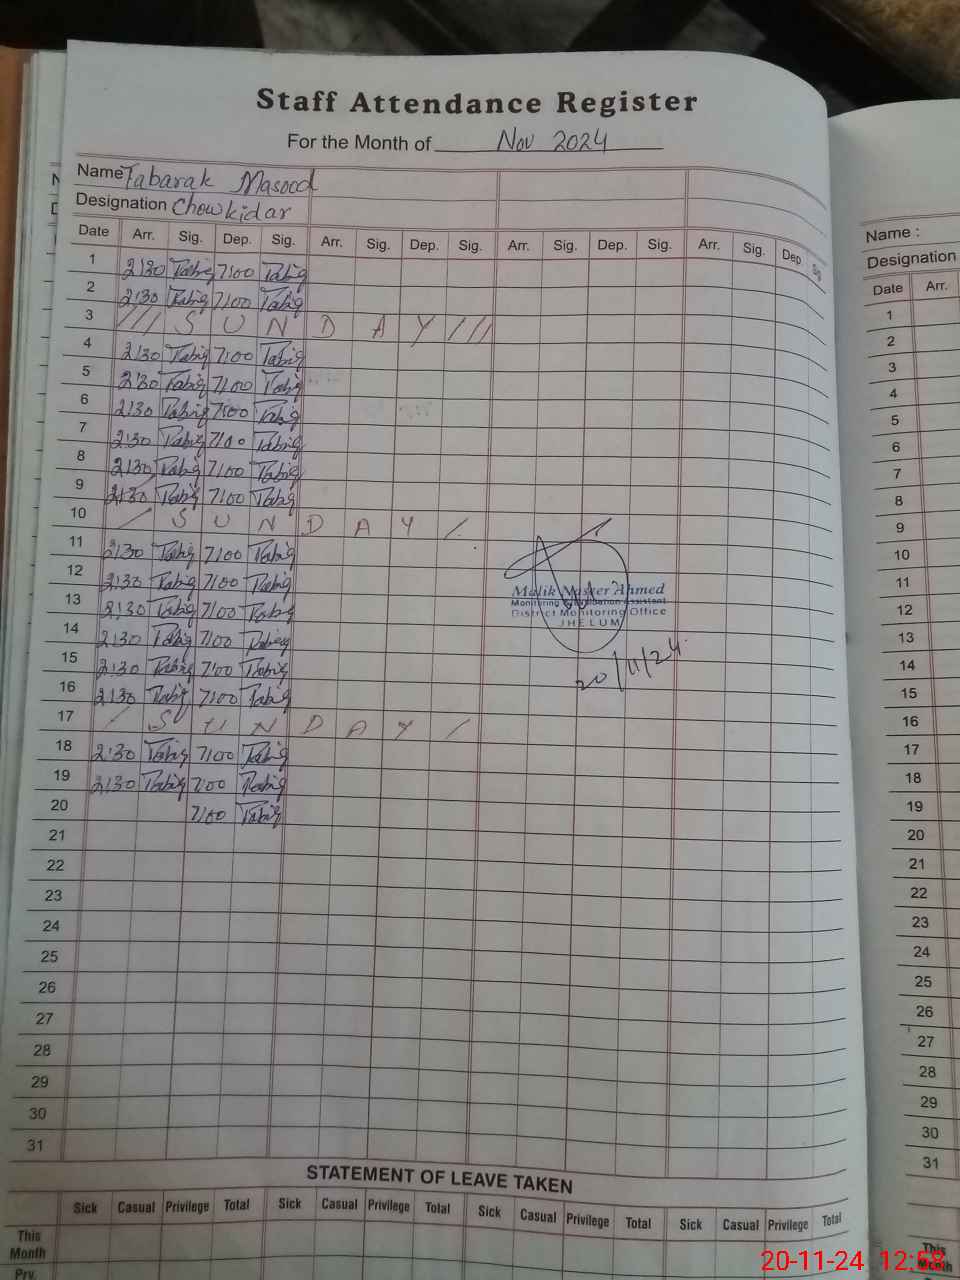 Staff Attendance Register
For the Month of Nov 2024
Name Tabarak Masood
Designation Chowkidar
Date Arr. Sig. Dep. Sig. Arr. Sig. Dep. Sig. Arr. Sig. Dep. Sig. Arr. Sig. Dep Sig
1 2:30 Tabiq 7:00 Tabiq
2 2:30 Tabiq 7:00 Tabiq
3 /// S U N D A Y ///
4 2:30 Tabiq 7:00 Tabiq
5 2:30 Tabiq 7:00 Tabiq
6 2:30 Tabiq 7:00 Tabiq
7 2:30 Tabiq 7:00 Tabiq
8 2:30 Tabiq 7:00 Tabiq
9 2:30 Tabiq 7:00 Tabiq
10 / S U N D A Y /
11 2:30 Tabiq 7:00 Tabiq
12 2:30 Tabiq 7:00 Tabiq
13 2:30 Tabiq 7:00 Tabiq
14 2:30 Tabiq 7:00 Tabiq
15 2:30 Tabiq 7:00 Tabiq
16 2:30 Tabiq 7:00 Tabiq
17 / S U N D A Y /
18 2:30 Tabiq 7:00 Tabiq
19 2:30 Tabiq 7:00 Tabiq
20 7:00 Tabiq
21
22
23
24
25
26
27
28
29
30
31
Malik Naseer Ahmed
Monitoring Assistant
District Monitoring Office
JHELUM
20/11/24
STATEMENT OF LEAVE TAKEN
Sick Casual Privilege Total Sick Casual Privilege Total Sick Casual Privilege Total Sick Casual Privilege Total
This Month
Prv.
Name :
Designation
Date Arr.
1
2
3
4
5
6
7
8
9
10
11
12
13
14
15
16
17
18
19
20
21
22
23
24
25
26
27
28
29
30
31
This
Month
20-11-24 12:58